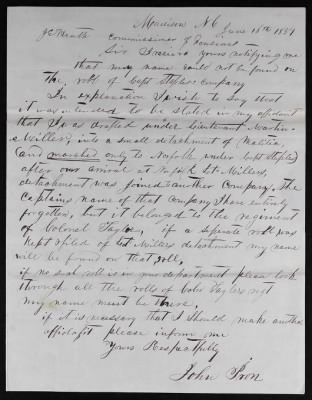 Monrison N.C June 15th 1859
J. C. Heath Commissioner of Pensions
Sir I received yours notifying me
that my name could not be found on
the roll of Capt Staples company
In explanation I wish to say that
it was intended to be stated in my affidavit
that I was drafted under Lieutenant Martin
Miller, into a small detachment of Malitia
(and marched only to Norfolk under Capt Staples)
after our arrival at Norfolk Lt. Millers,
detachment was joined another Company. The
captains name of that company I have entirly
forgotten, but it belonged to the regiment
of Colonel Taylor, if a seprate roll was
kept & filed of Lt Millers detachment my name
will be found on that roll,
if no such roll is in your department please look
through all the rolls of Cols Taylors regt
my name must be there,
if it is necessary that I should make another
affidafit please inform me
Yours Respectfully
John Iron